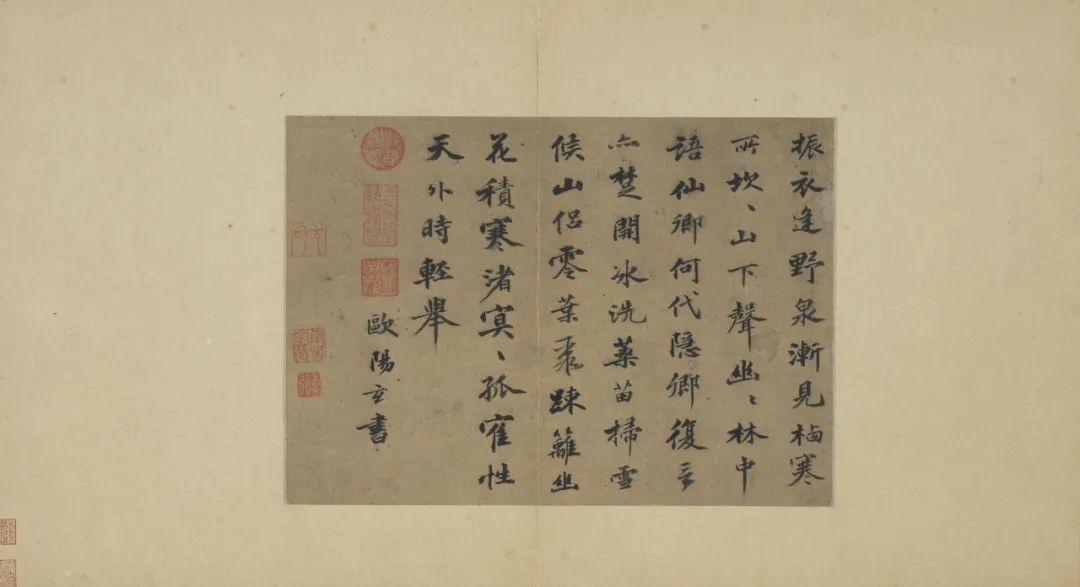 振衣逢野泉漸見栖寒
所坎〻山下聲幽〻林中
語仙卿何代隱鄉復言
亦楚開冰洗藥苗掃雪
候山侶零葉聚踈籬幽
花積寒渚冥〻孤寉性
天外時輕舉
歐陽玄書